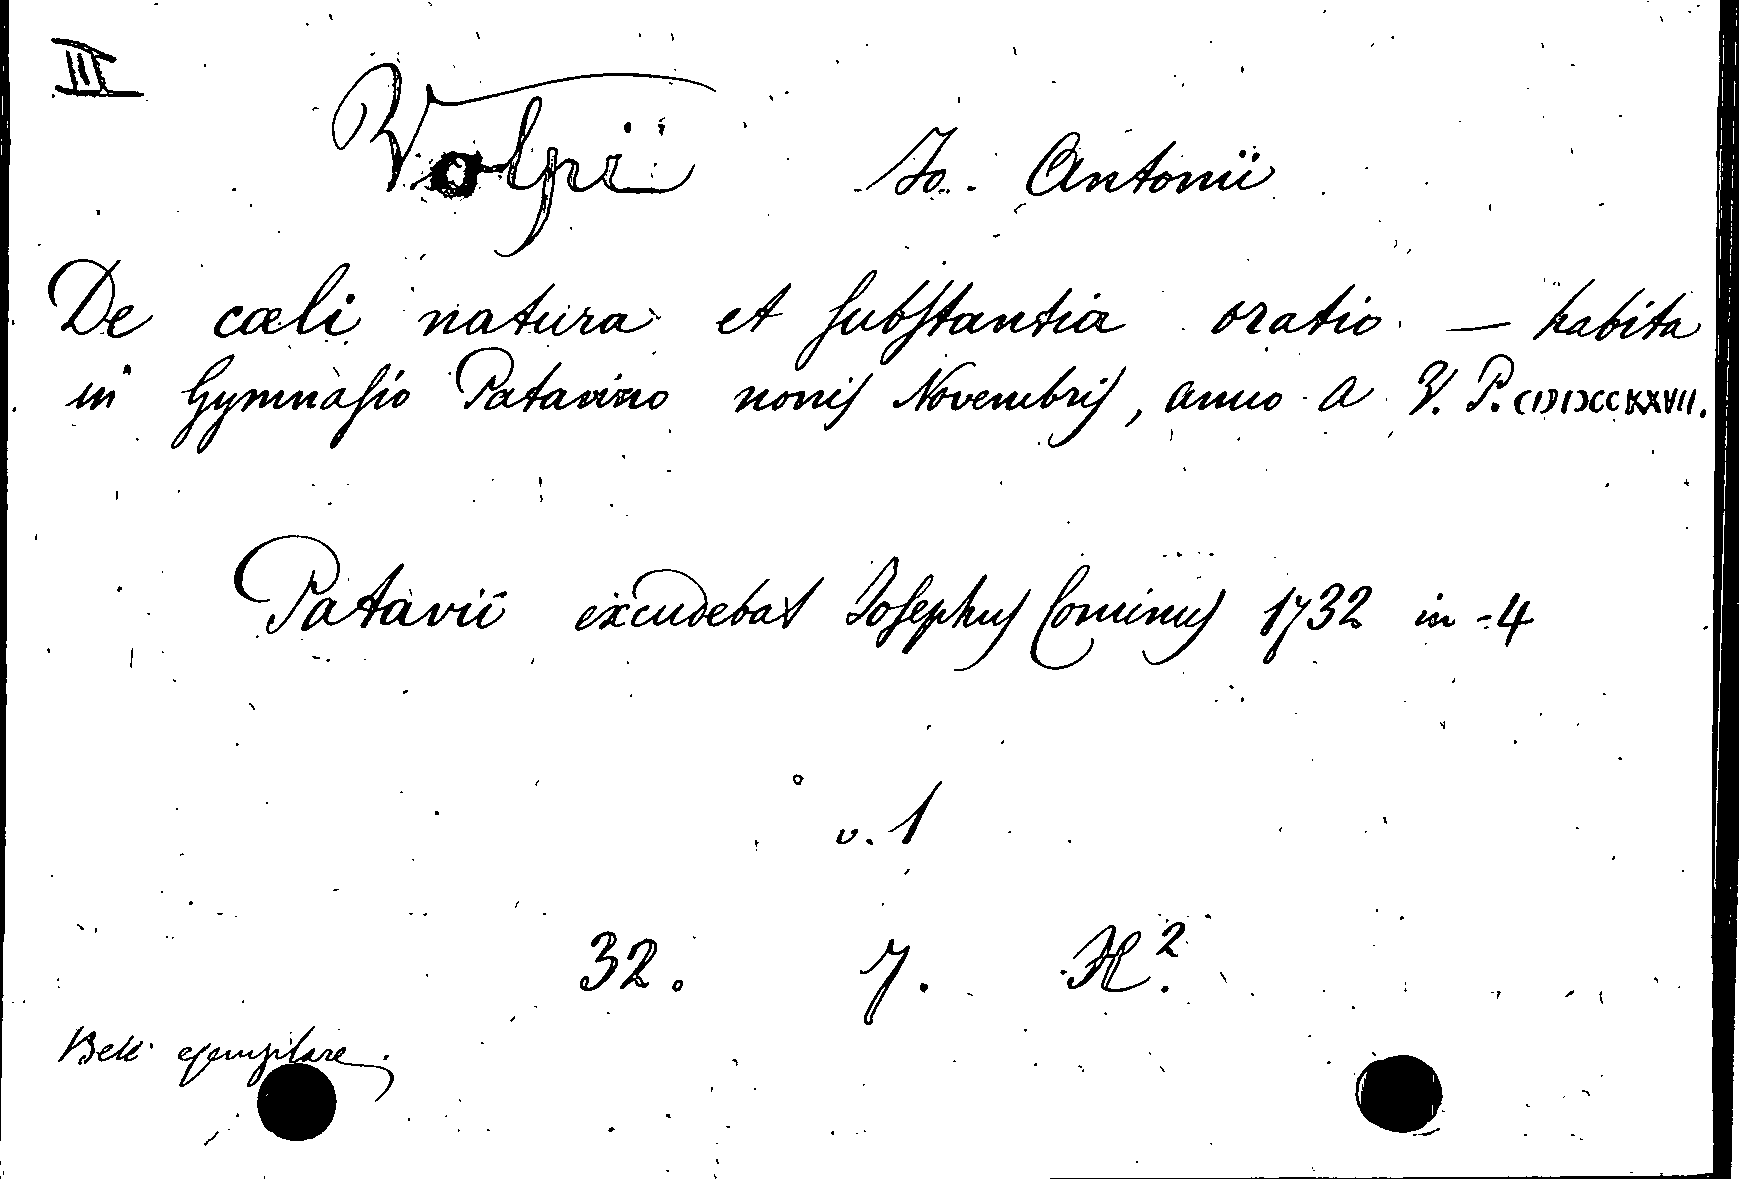 III
Volpii Jo. Antonii
De cœli natura et substantia oratio — habita
in Gymnasio Patavino nonis Novembris, anno a V. P. CIƆIƆCCXXVII.
Patavii excudebat Josephus Cominus 1732 in-4
v. 1
32. 7. H².
Bell' esemplare.